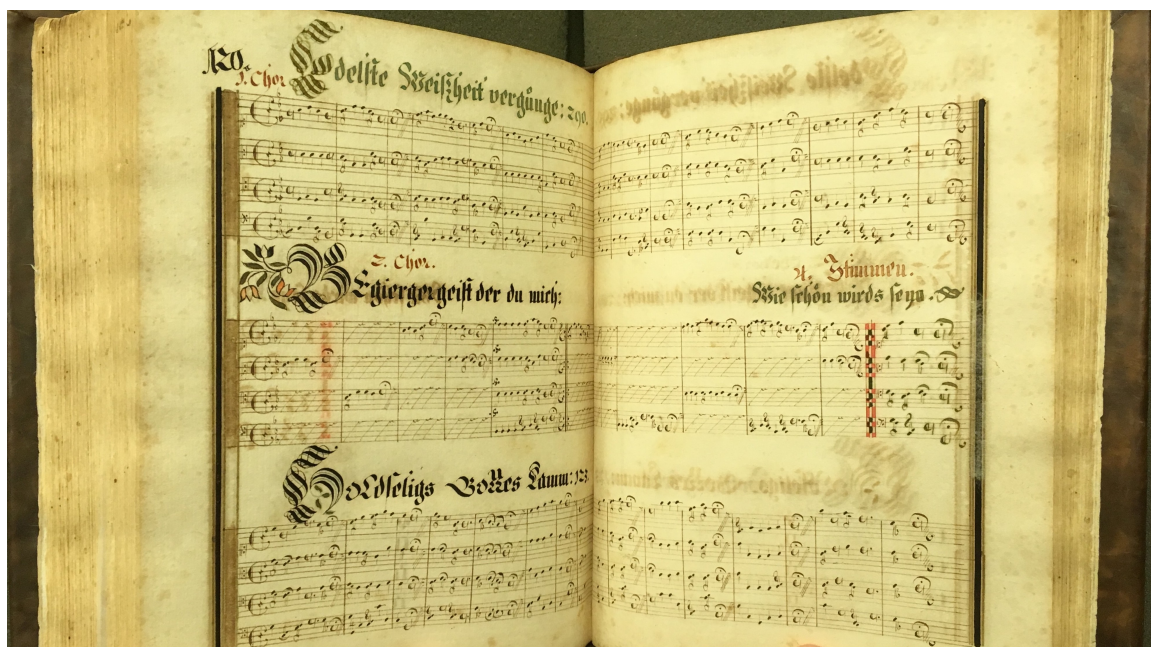 120.
1. Chor
Edelste Weißheit vergünge: 290.
2. Chor.
Begiergergeist der du mich:
4. Stimmen.
Wie schön wirds seyn.
Holdseligs Gottes Lamm: 123